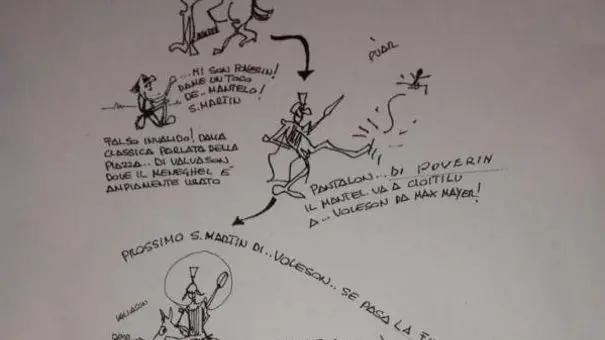 ...MI SON POVERIN!
DAME UN TOCO
DE..MANTELO!
S.MARTIN
FALSO INVALIDO! DALLA
CLASSICA PARLATA DELLA
PIAZZA... DI VALVASON
DOVE IL MENEGHEL E'
AMPIAMENTE USATO
PUAR
PANTALON...DI POVERIN
IL MANTEL VA A CLOITILU
A...VOLESON DA MAX MAYER!
PROSSIMO S.MARTIN DI..VOLESON.. SE PASA LA